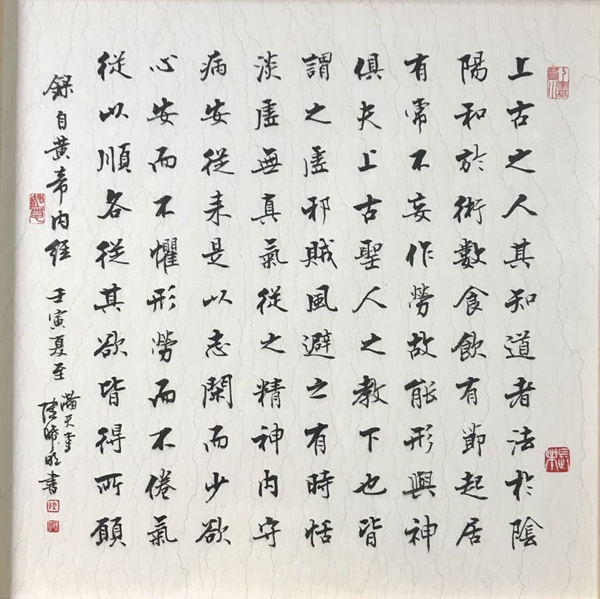 上古之人其知道者法於陰
陽和於術數食飲有節起居
有常不妄作勞故能形與神
俱夫上古聖人之教下也皆
謂之虛邪賊風避之有時恬
淡虛無真氣從之精神内守
病安從来是以志閑而少欲
心安而不懼形勞而不倦氣
從以順各從其欲皆得所願
錄自黃帝内經 壬寅夏至
書